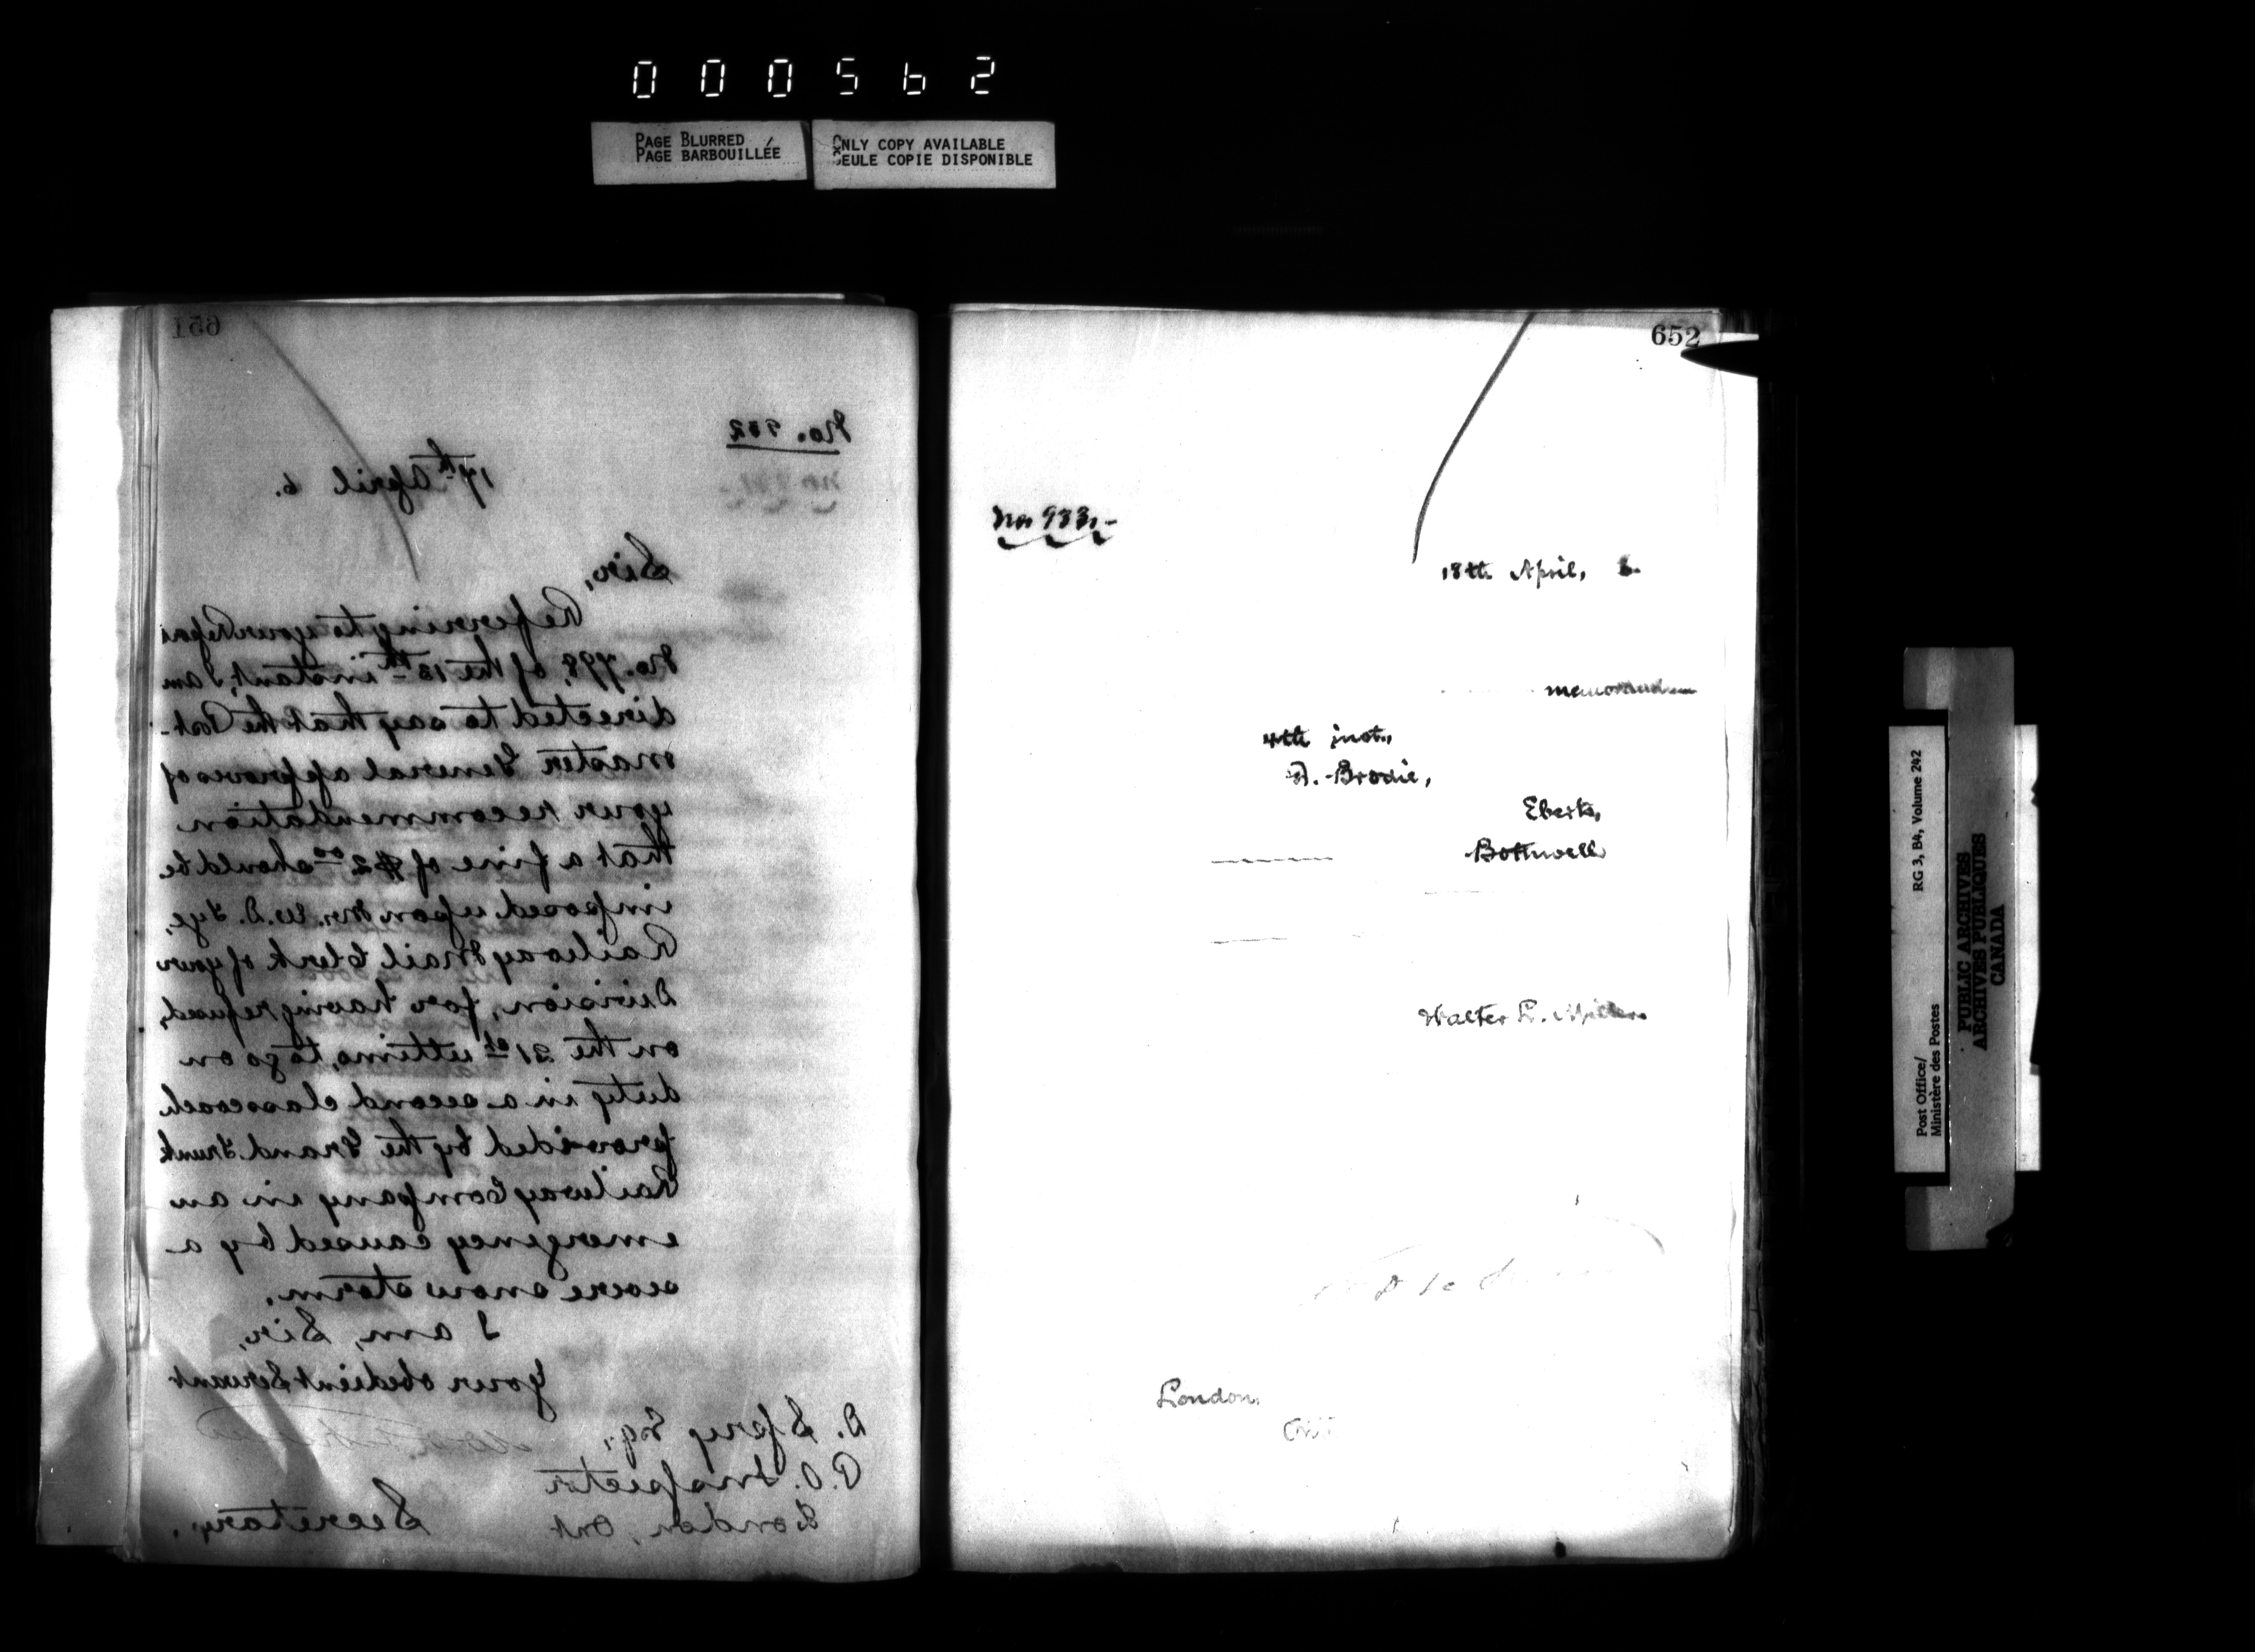 000562
PAGE BLURRED
PAGE BARBOUILLÉE
ONLY COPY AVAILABLE
SEULE COPIE DISPONIBLE
651
No. 932
17th April 6.
Sir,
Referring to your Report
No. 798, of the 13th instant, I am
directed to say that the Post-
master General approves of
your recommendation
that a fine of $2.00 should be
imposed upon Mr. W. D. Tye,
Railway Mail Clerk of your
Division, for having refused,
on the 21st ultimo, to go on
duty in a second class coach
provided by the Grand Trunk
Railway Company in an
emergency caused by a
severe snow storm.
I am, Sir,
Your obedient Servant
Secretary.
D. Spry Esq,
P. O. Inspector
London, Ont
652
No. 933.-
18th April, 6.
memorandum
4th inst.,
A. Brodie,
Eberts,
Bothwell
Walter L. Miller
London,
Ont
Post Office/
Ministère des Postes
RG 3, B4, Volume 242
PUBLIC ARCHIVES
ARCHIVES PUBLIQUES
CANADA